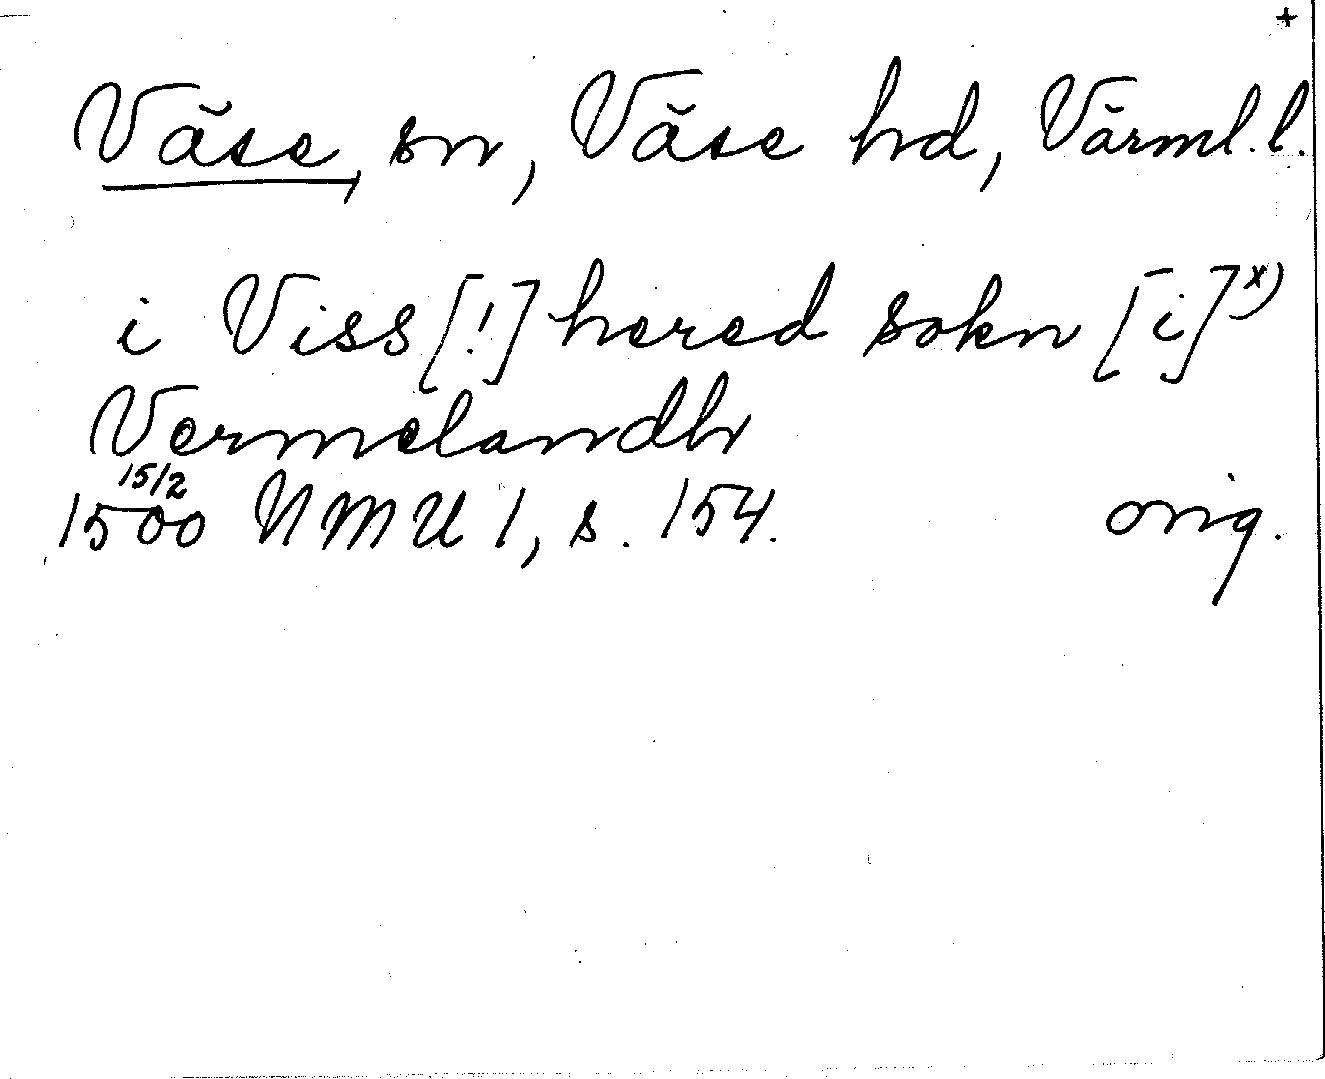 +
Väse, sn, Väse hd, Värml. l.
i Viss [!] hered sokn [i] x)
Vermelandh
15/2
1500 NMU 1, s. 154. orig.